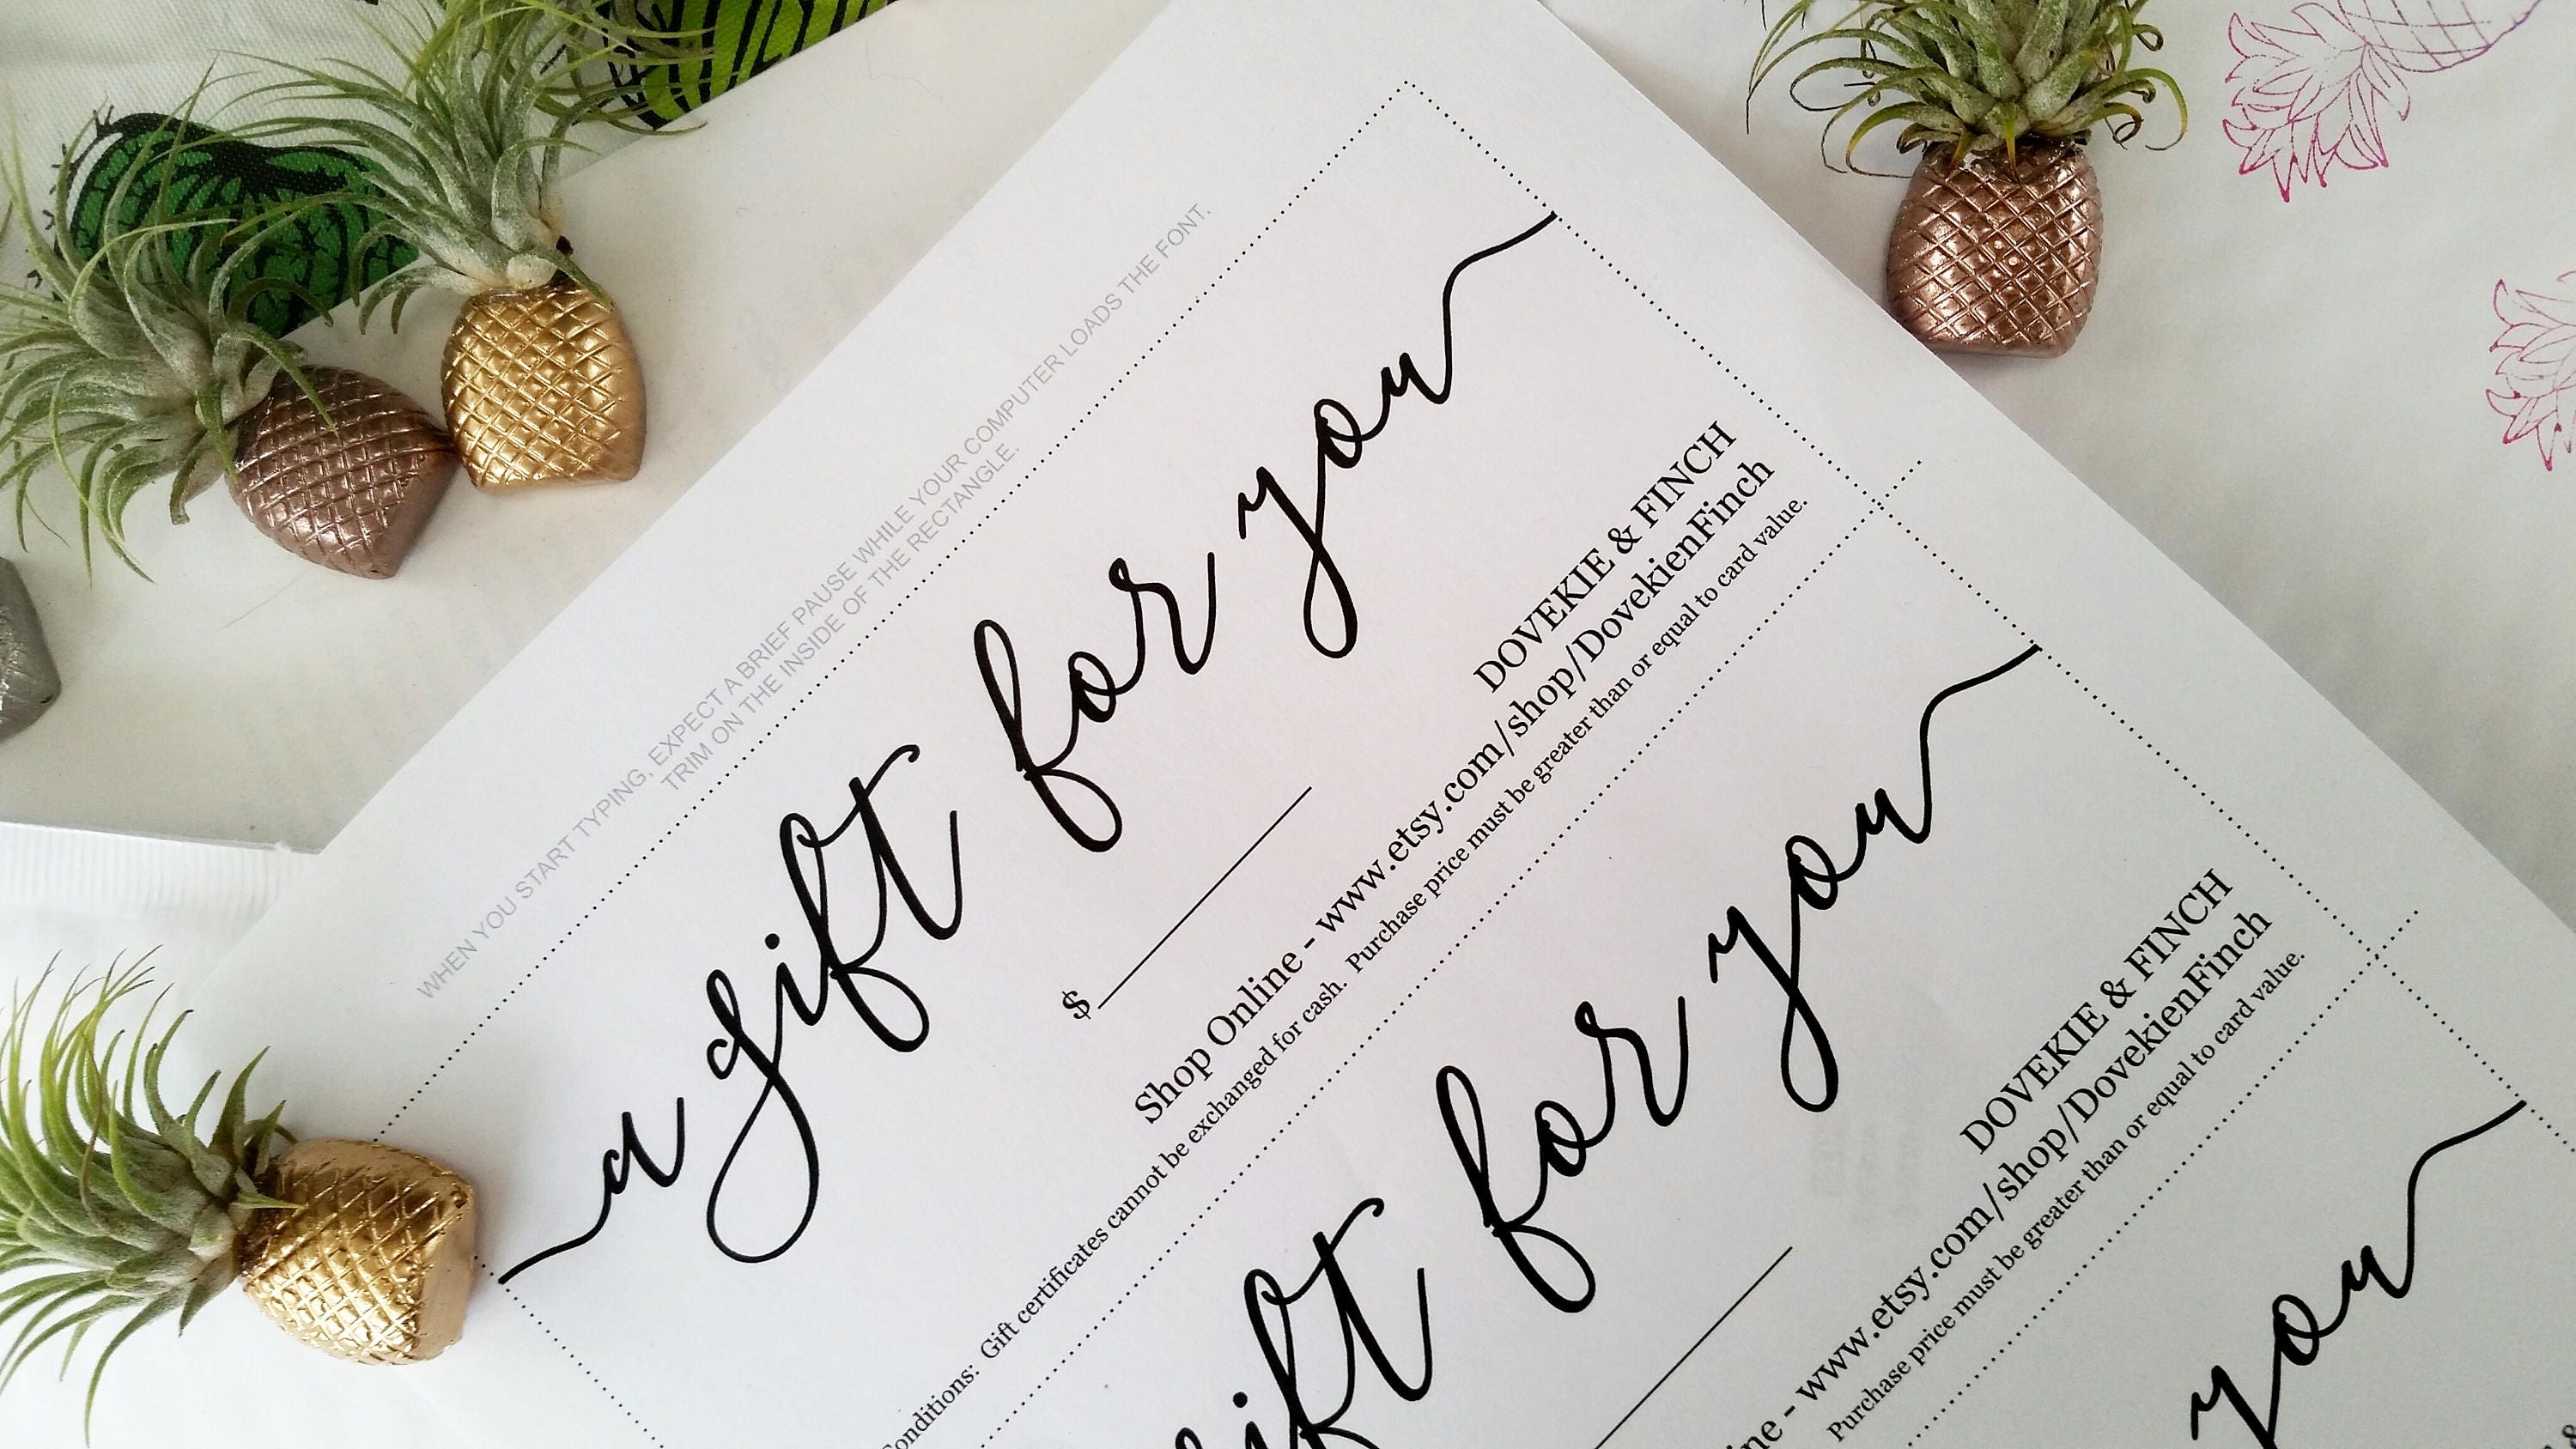 WHEN YOU START TYPING, EXPECT A BRIEF PAUSE WHILE YOUR COMPUTER LOADS THE FONT.
TRIM ON THE INSIDE OF THE RECTANGLE.
a gift for you
$
DOVEKIE & FINCH
Shop Online - www.etsy.com/shop/DovekienFinch
Conditions: Gift certificates cannot be exchanged for cash. Purchase price must be greater than or equal to card value.
gift for you
DOVEKIE & FINCH
www.etsy.com/shop/DovekienFinch
Purchase price must be greater than or equal to card value.
you